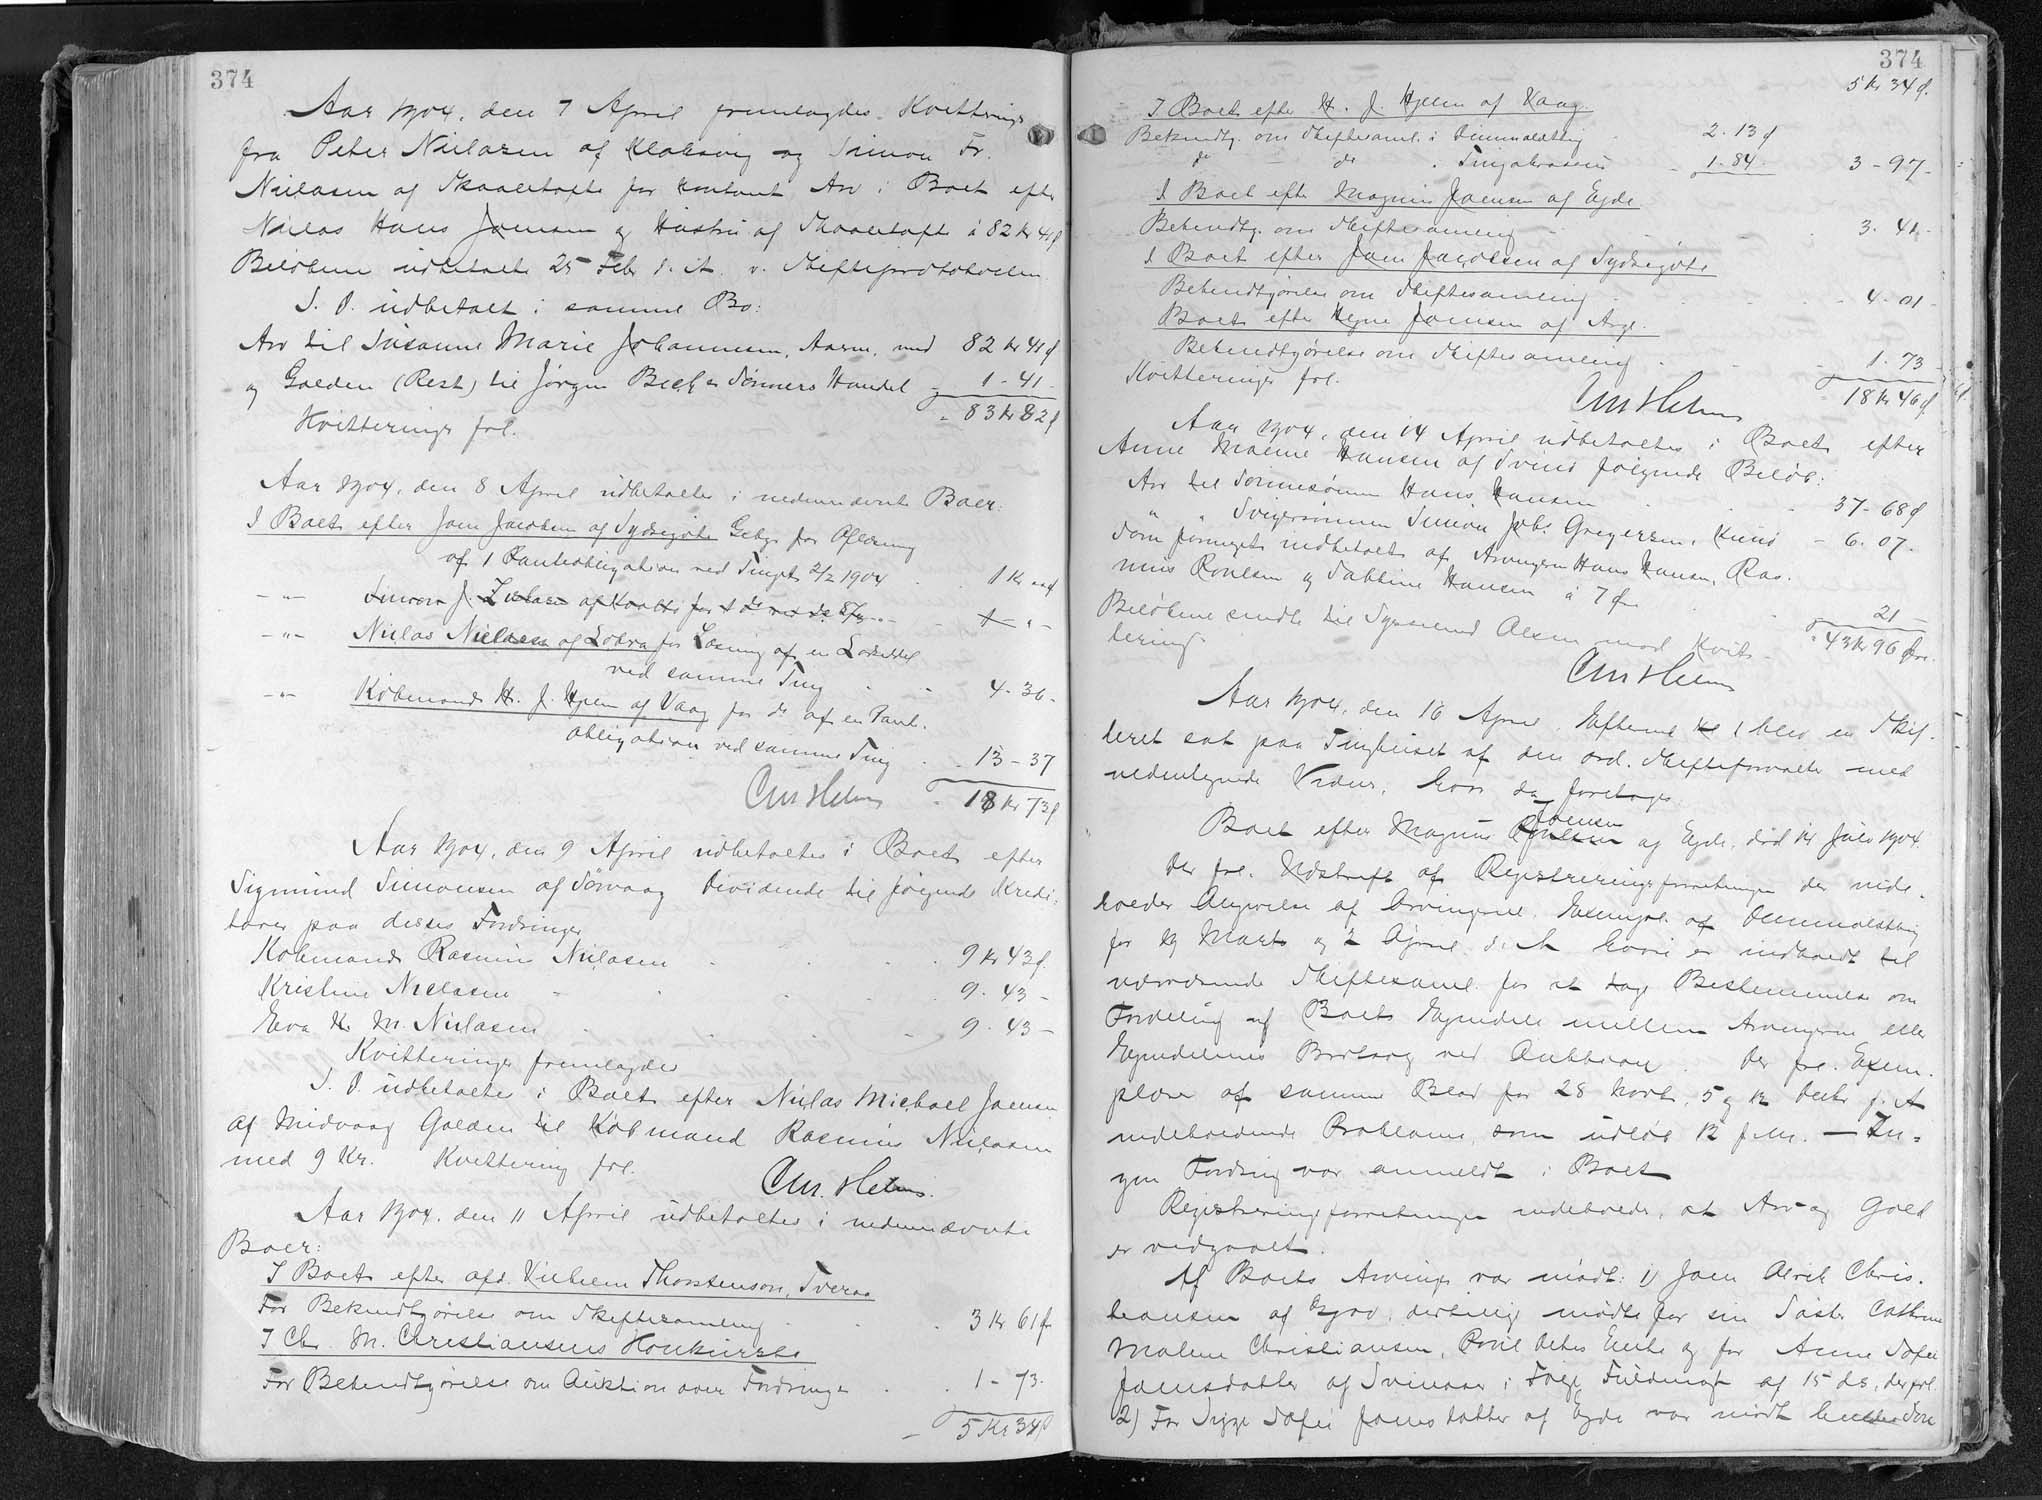 374
Aar 1904, den 7 April fremlagdes Kvitteringer
fra Peter Nielasen af Klaksvig og Simon Fr.
Nielasen af Skaaletofte for kontant Arv i Boet efter
Nielas Hans Joensen og Hustru af Skaaletofte à 82 Kr 41 ø
Beløbene udbetalte 25 Febr d. A. v. Skifteprotokolen.
S. D. udbetalt i samme Bo:
Arv til Susanne Marie Johannesen, med 82 Kr 41 ø
og Gælden (Rest) til Jørgen Bech & Sønners Handel - 1 - 41 -
- 83 Kr 82 ø
Kvitteringer frl.
Aar 1904, den 8 April udbetaltes i nedennævnte Boer:
I Boet efter Joen Jacobsen af Sydregøte Gebyr for Aflæsning
af 1 Panteobligation ved Tinget 2/2 1904 - 1 Kr
- " - Simon J. af for 1 do ved do - 1 - " -
- " - Nielas Nielasen af for Læsning af en
ved samme Ting - 4 - 36 -
- " - Købmand H. J. Hjelm af Vaag for do af en Pant-
obligation ved samme Ting - 13 - 37
- 18 Kr 73 ø
Aar 1904, den 9 April udbetaltes i Boet efter
Sigmund Simonsen af Sørvaag Dividende til følgende Kredi-
torer paa deres Fordringer
Købmand Rasmus Nielasen - 9 Kr 43 ø
Kristine Nielasen - 9 - 43 -
Eva K. M. Nielasen - 9 - 43 -
Kvitteringer fremlagdes
S. D. udbetaltes i Boet efter Nielas Michael Joensen
af Midvaag Gælden til Købmand Rasmus Nielasen
med 9 Kr. Kvittering frl.
Aar 1904, den 11 April udbetaltes i nedennævnte
Boer:
I Boet efter afd. Vilhelm Thorstenson, Tveraa
For Bekendtgørelse om Skiftesamling - 3 Kr 61 ø
I Chr. M. Christiansens Konkursbo
For Bekendtgørelse om Auktion over Fordringer - 1 - 73 -
- 5 Kr 34 ø
374
5 Kr 34 ø.
I Boet efter H. J. Hjelm af Vaag.
Bekendtg. om Skiftesaml. i Dimmalætting 2 - 13 ø
do - do - Tingakrossur - 1 - 84 - 3 - 97 -
I Boet efter Magnus Joensen af Ejde
Bekendtg. om Skiftesamling 3 - 41 -
I Boet efter Joen Jacobsen af Sydregøte
Bekendtgørelse om Skiftesamling - 4 - 01 -
Boet efter Joensen af Arge.
Bekendtgørelse om Skiftesamling 1 - 73 -
Kvitteringer frl. - 18 Kr 46 ø
Aar 1904, den 14 April udbetaltes i Boet efter
Anne Malene Hansen af Svinø følgende Beløb:
Arv til Sønnesønnen Hans Hansen - 37 - 68 ø
" " Svigersønnen Simon Jcb. Gregersen, Kunø - 6 - 07 -
Som forøget indbetalt af Arvingerne Hans Hansen, Ras-
mus Poulsen og Sabbine Hansen à 7 Øre - 21 -
Beløbene sendt til Sysselmd Olsen mod Kvit- - 43 Kr 96 Øre.
tering.
Aar 1904, den 16 April Efterm. Kl 1 blev en Skif-
teret sat paa Tinghuset af den ord. Skifteforvalter med
undertegnede Vidner, hvor da foretoges
Joensen
Boet efter Magnus Poulsen af Ejde, død 14 Juli 1904.
Der frl. Udskrift af Registreringsforretningen der inde-
holder Angivelse af Arvingerne. Exempl. af Dimmalætting
for 19 Marts og 2 April d. A. hvori er indkaldt til
nærværende Skiftesaml. for at tage Bestemmelse om
Fordeling af Boets Ejendele mellem Arvingerne eller
Ejendelenes Bortsalg ved Auktion. Der frl. Exem-
plarer af samme Blad for 28 Novbr, 5 og 12 Decbr f. A
indeholdende Proklama, som udløb 12 f. M. — In-
gen Fordring var anmeldt i Boet
Registreringsforretningen indeholder, at Arv og Gæld
er vedgaaet.
Af Boets Arvinger var mødt: 1) Joen Olrik Chris-
tiansen af, derhenig mødte for sin Søster Cathrine
Malene Christiansen, Poul Enke og for Anne Sofie
Joensdatter af Svinaar i Følge Fuldmagt af 15 ds, der frl.
2) For Sigge Sofie Joensdatter af Ejde var mødt hendes Søn